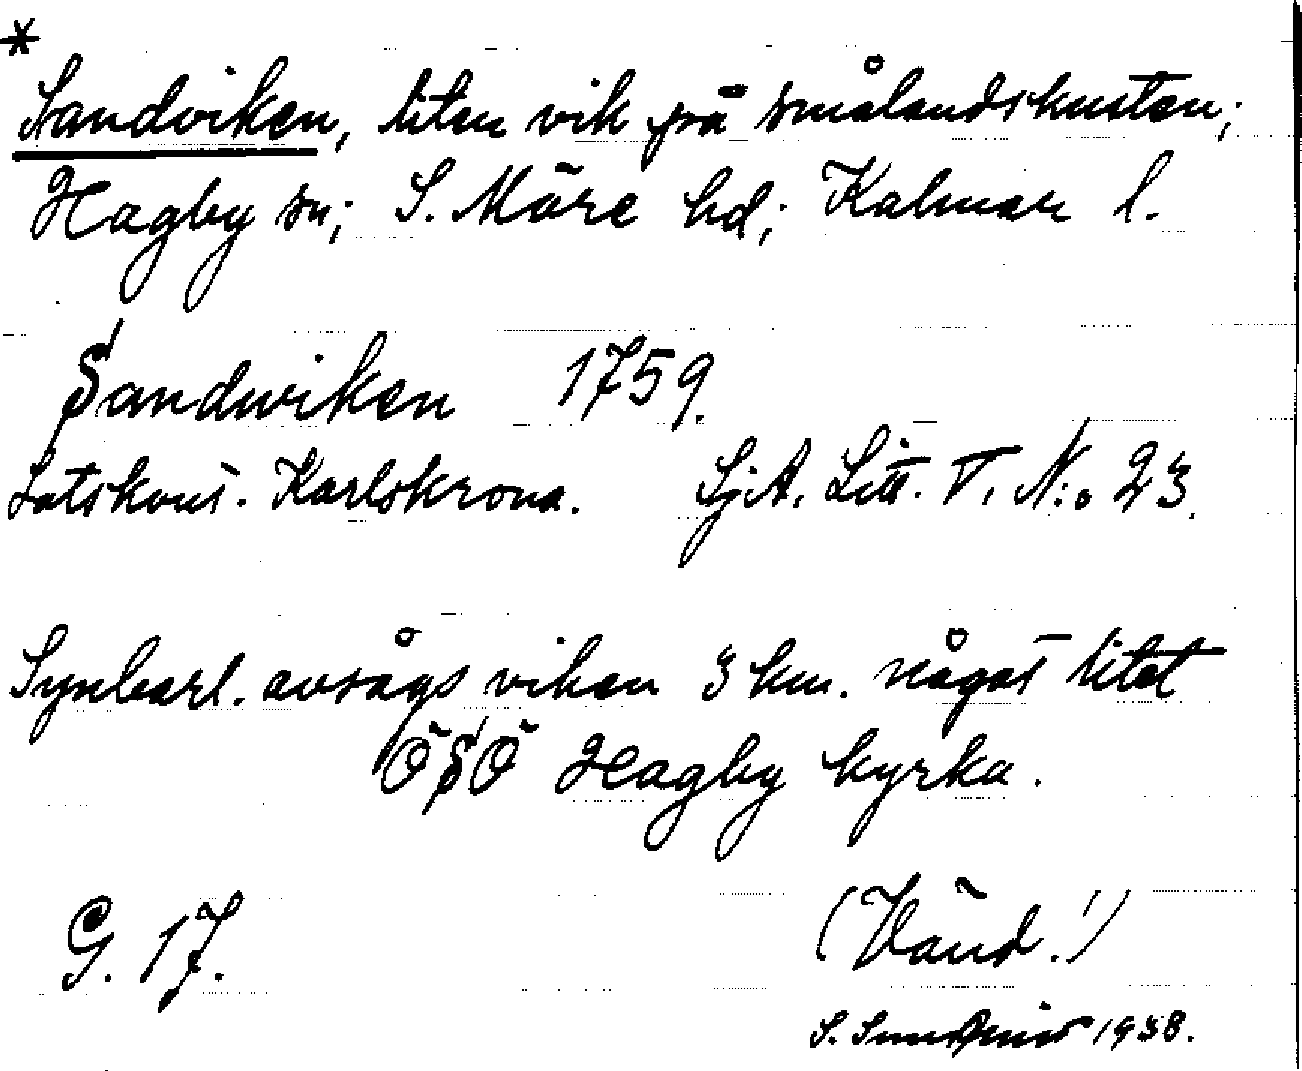 *
Sandviken, liten vik på smålandskusten;
Hagby sn; S. Möre hd; Kalmar l.
Sandwiken 1759.
Lotskont. Karlskrona. SjA. Litt. V. N:o 23.
Synbarl. avsågs viken 3 km. något litet
ÖSÖ Hagby kyrka.
G. 17.
(Vänd!)
S. Sundquist 1938.